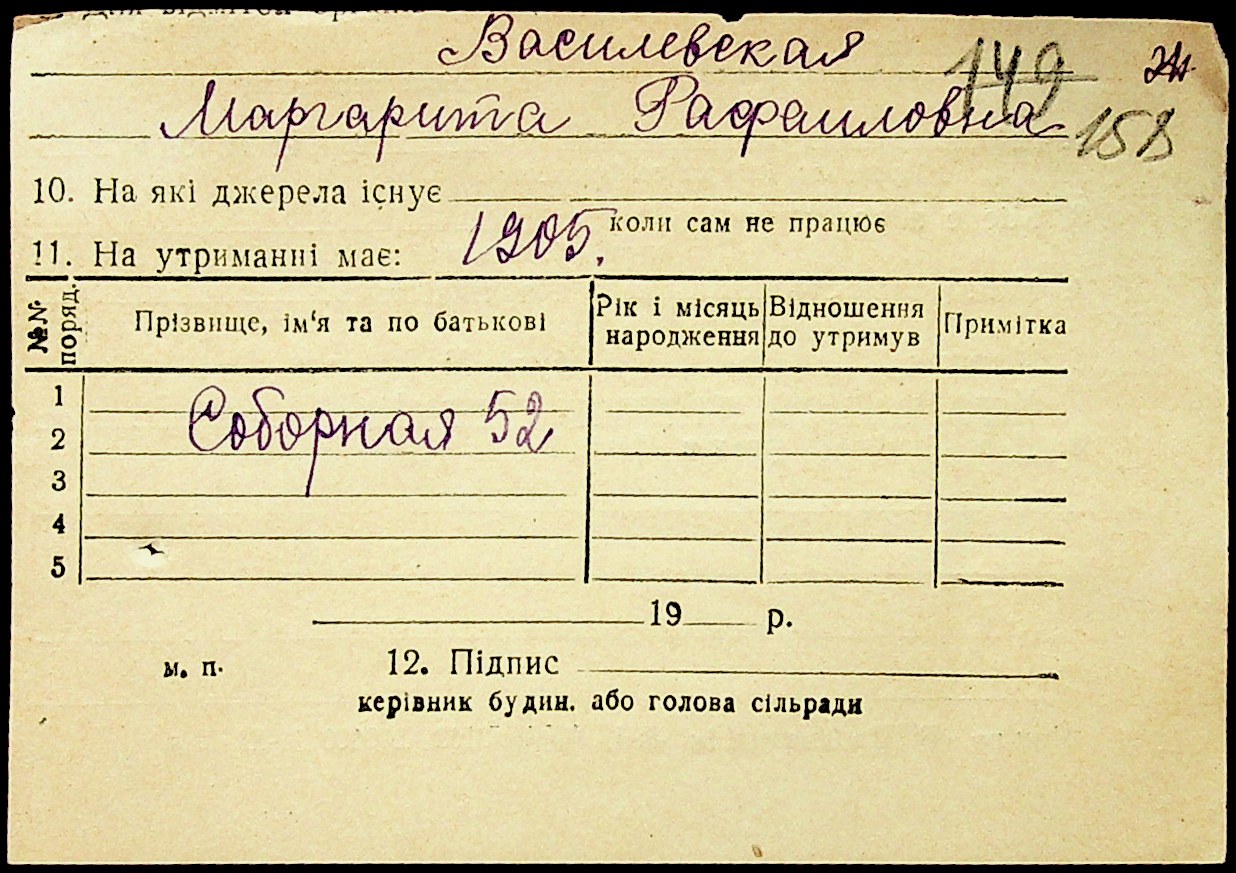 Василевская
149
Маргарита Рафаиловна
158
10. На які джерела існує
коли сам не працює
11. На утриманні має: 1905.
№№ поряд.
Прізвище, ім‘я та по батькові
Рік і місяць народження
Відношення до утримув
Примітка
1
Соборная 52
2
3
4
5
19 р.
м. п.
12. Підпис
керівник будин. або голова сільради